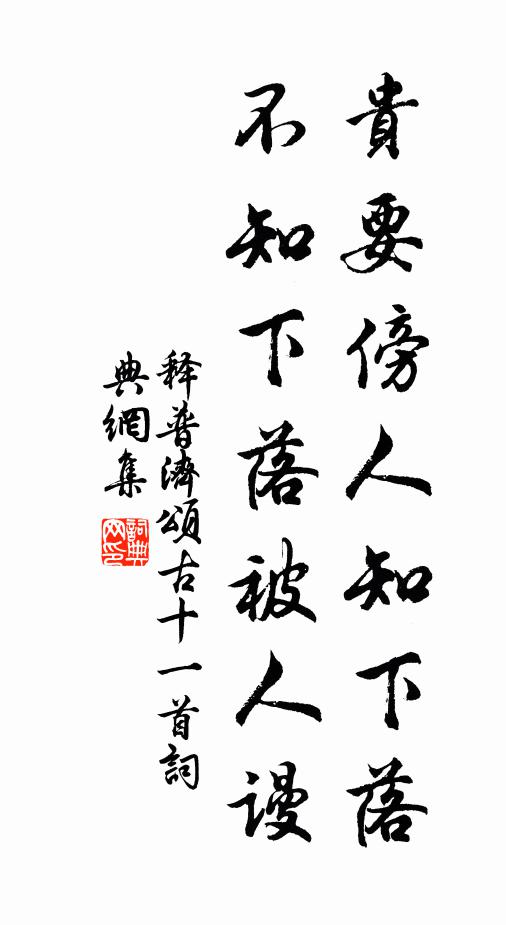 貴要傍人知下落
不知下落被人謾
释普濟頌古十一首詞
典網集
詞典网印